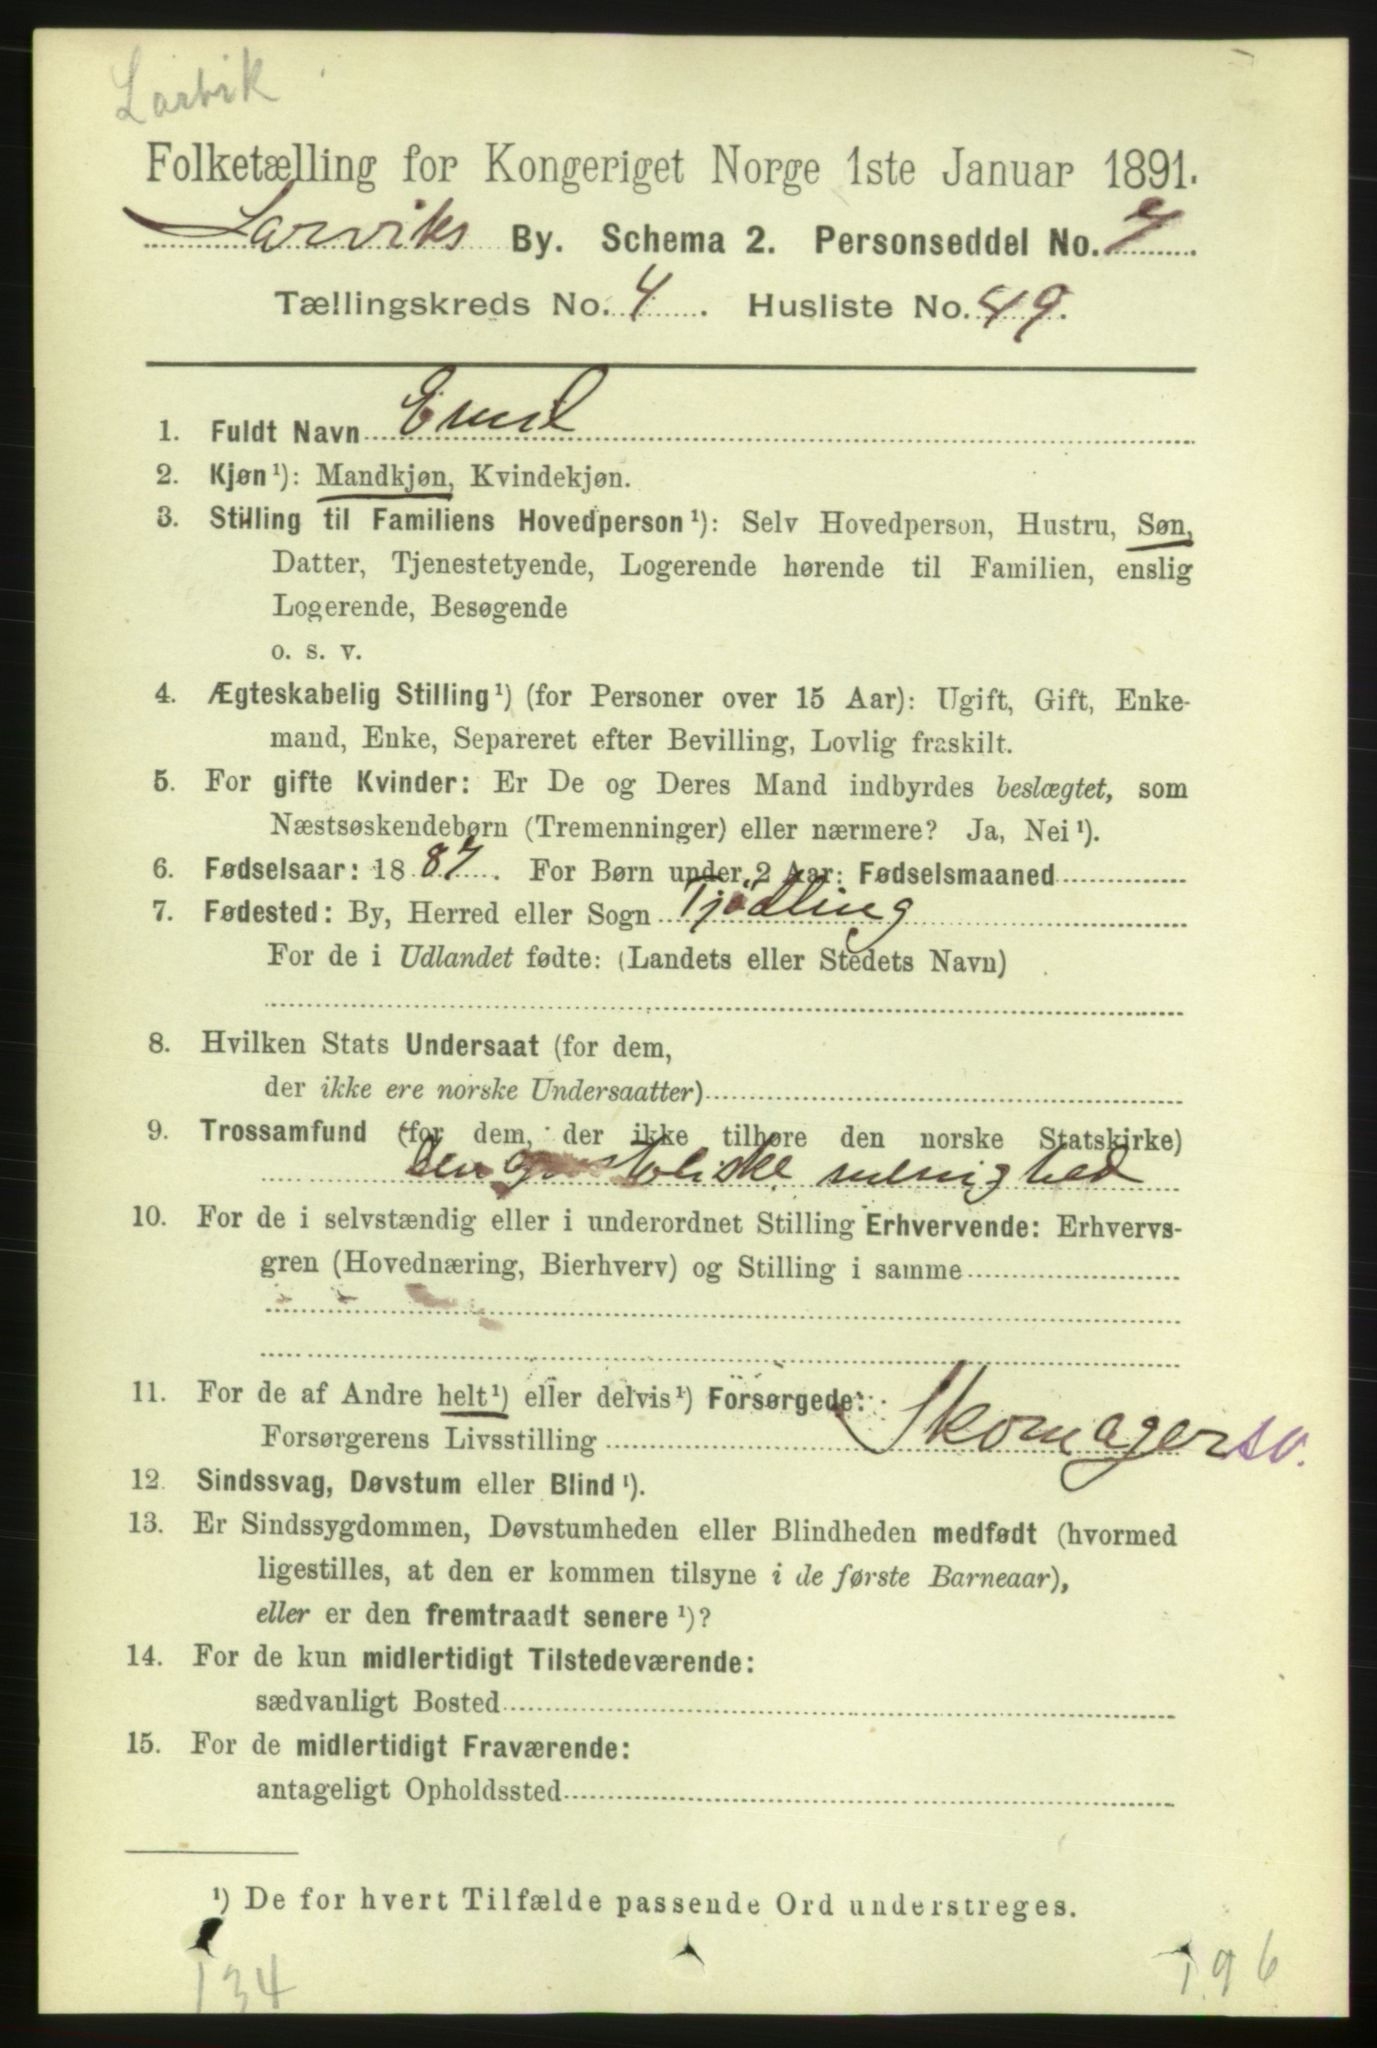 Larvik
Folketælling for Kongeriget Norge 1ste Januar 1891.
Larviks By. Schema 2. Personseddel No. 7
Tællingskreds No. 4. Husliste No. 49.
1. Fuldt Navn Emil
2. Kjøn¹): Mandkjøn, Kvindekjøn.
3. Stilling til Familiens Hovedperson¹): Selv Hovedperson, Hustru, Søn,
Datter, Tjenestetyende, Logerende hørende til Familien, enslig
Logerende, Besøgende
o. s. v.
4. Ægteskabelig Stilling¹) (for Personer over 15 Aar): Ugift, Gift, Enke-
mand, Enke, Separeret efter Bevilling, Lovlig fraskilt.
5. For gifte Kvinder: Er De og Deres Mand indbyrdes beslægtet, som
Næstsøskendebørn (Tremenninger) eller nærmere? Ja, Nei¹).
6. Fødselsaar: 1887. For Børn under 2 Aar: Fødselsmaaned
7. Fødested: By, Herred eller Sogn Tjödling
For de i Udlandet fødte: (Landets eller Stedets Navn)
8. Hvilken Stats Undersaat (for dem,
der ikke ere norske Undersaatter)
9. Trossamfund (for dem, der ikke tilhøre den norske Statskirke)
Den apostoliske menighed
10. For de i selvstændig eller i underordnet Stilling Erhvervende: Erhvervs-
gren (Hovednæring, Bierhverv) og Stilling i samme
11. For de af Andre helt¹) eller delvis¹) Forsørgede:
Forsørgerens Livsstilling Skomager so.
12. Sindssvag, Døvstum eller Blind¹).
13. Er Sindssygdommen, Døvstumheden eller Blindheden medfødt (hvormed
ligestilles, at den er kommen tilsyne i de første Barneaar),
eller er den fremtraadt senere¹)?
14. For de kun midlertidigt Tilstedeværende:
sædvanligt Bosted
15. For de midlertidigt Fraværende:
antageligt Opholdssted
¹) De for hvert Tilfælde passende Ord understreges.
134
196